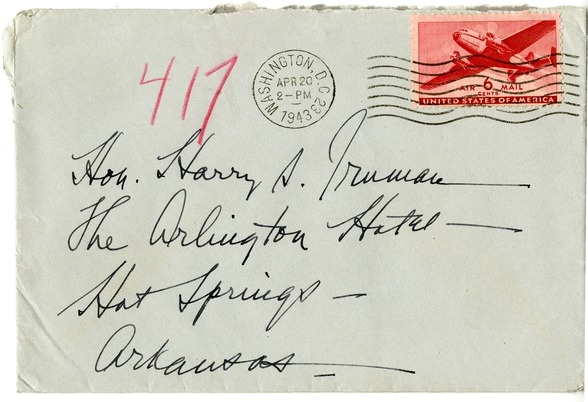 417
WASHINGTON, D.C. 23
APR 20
2-PM
1943
AIR 6 MAIL
CENTS
UNITED STATES OF AMERICA
Hon. Harry S. Truman
The Arlington Hotel
Hot Springs
Arkansas